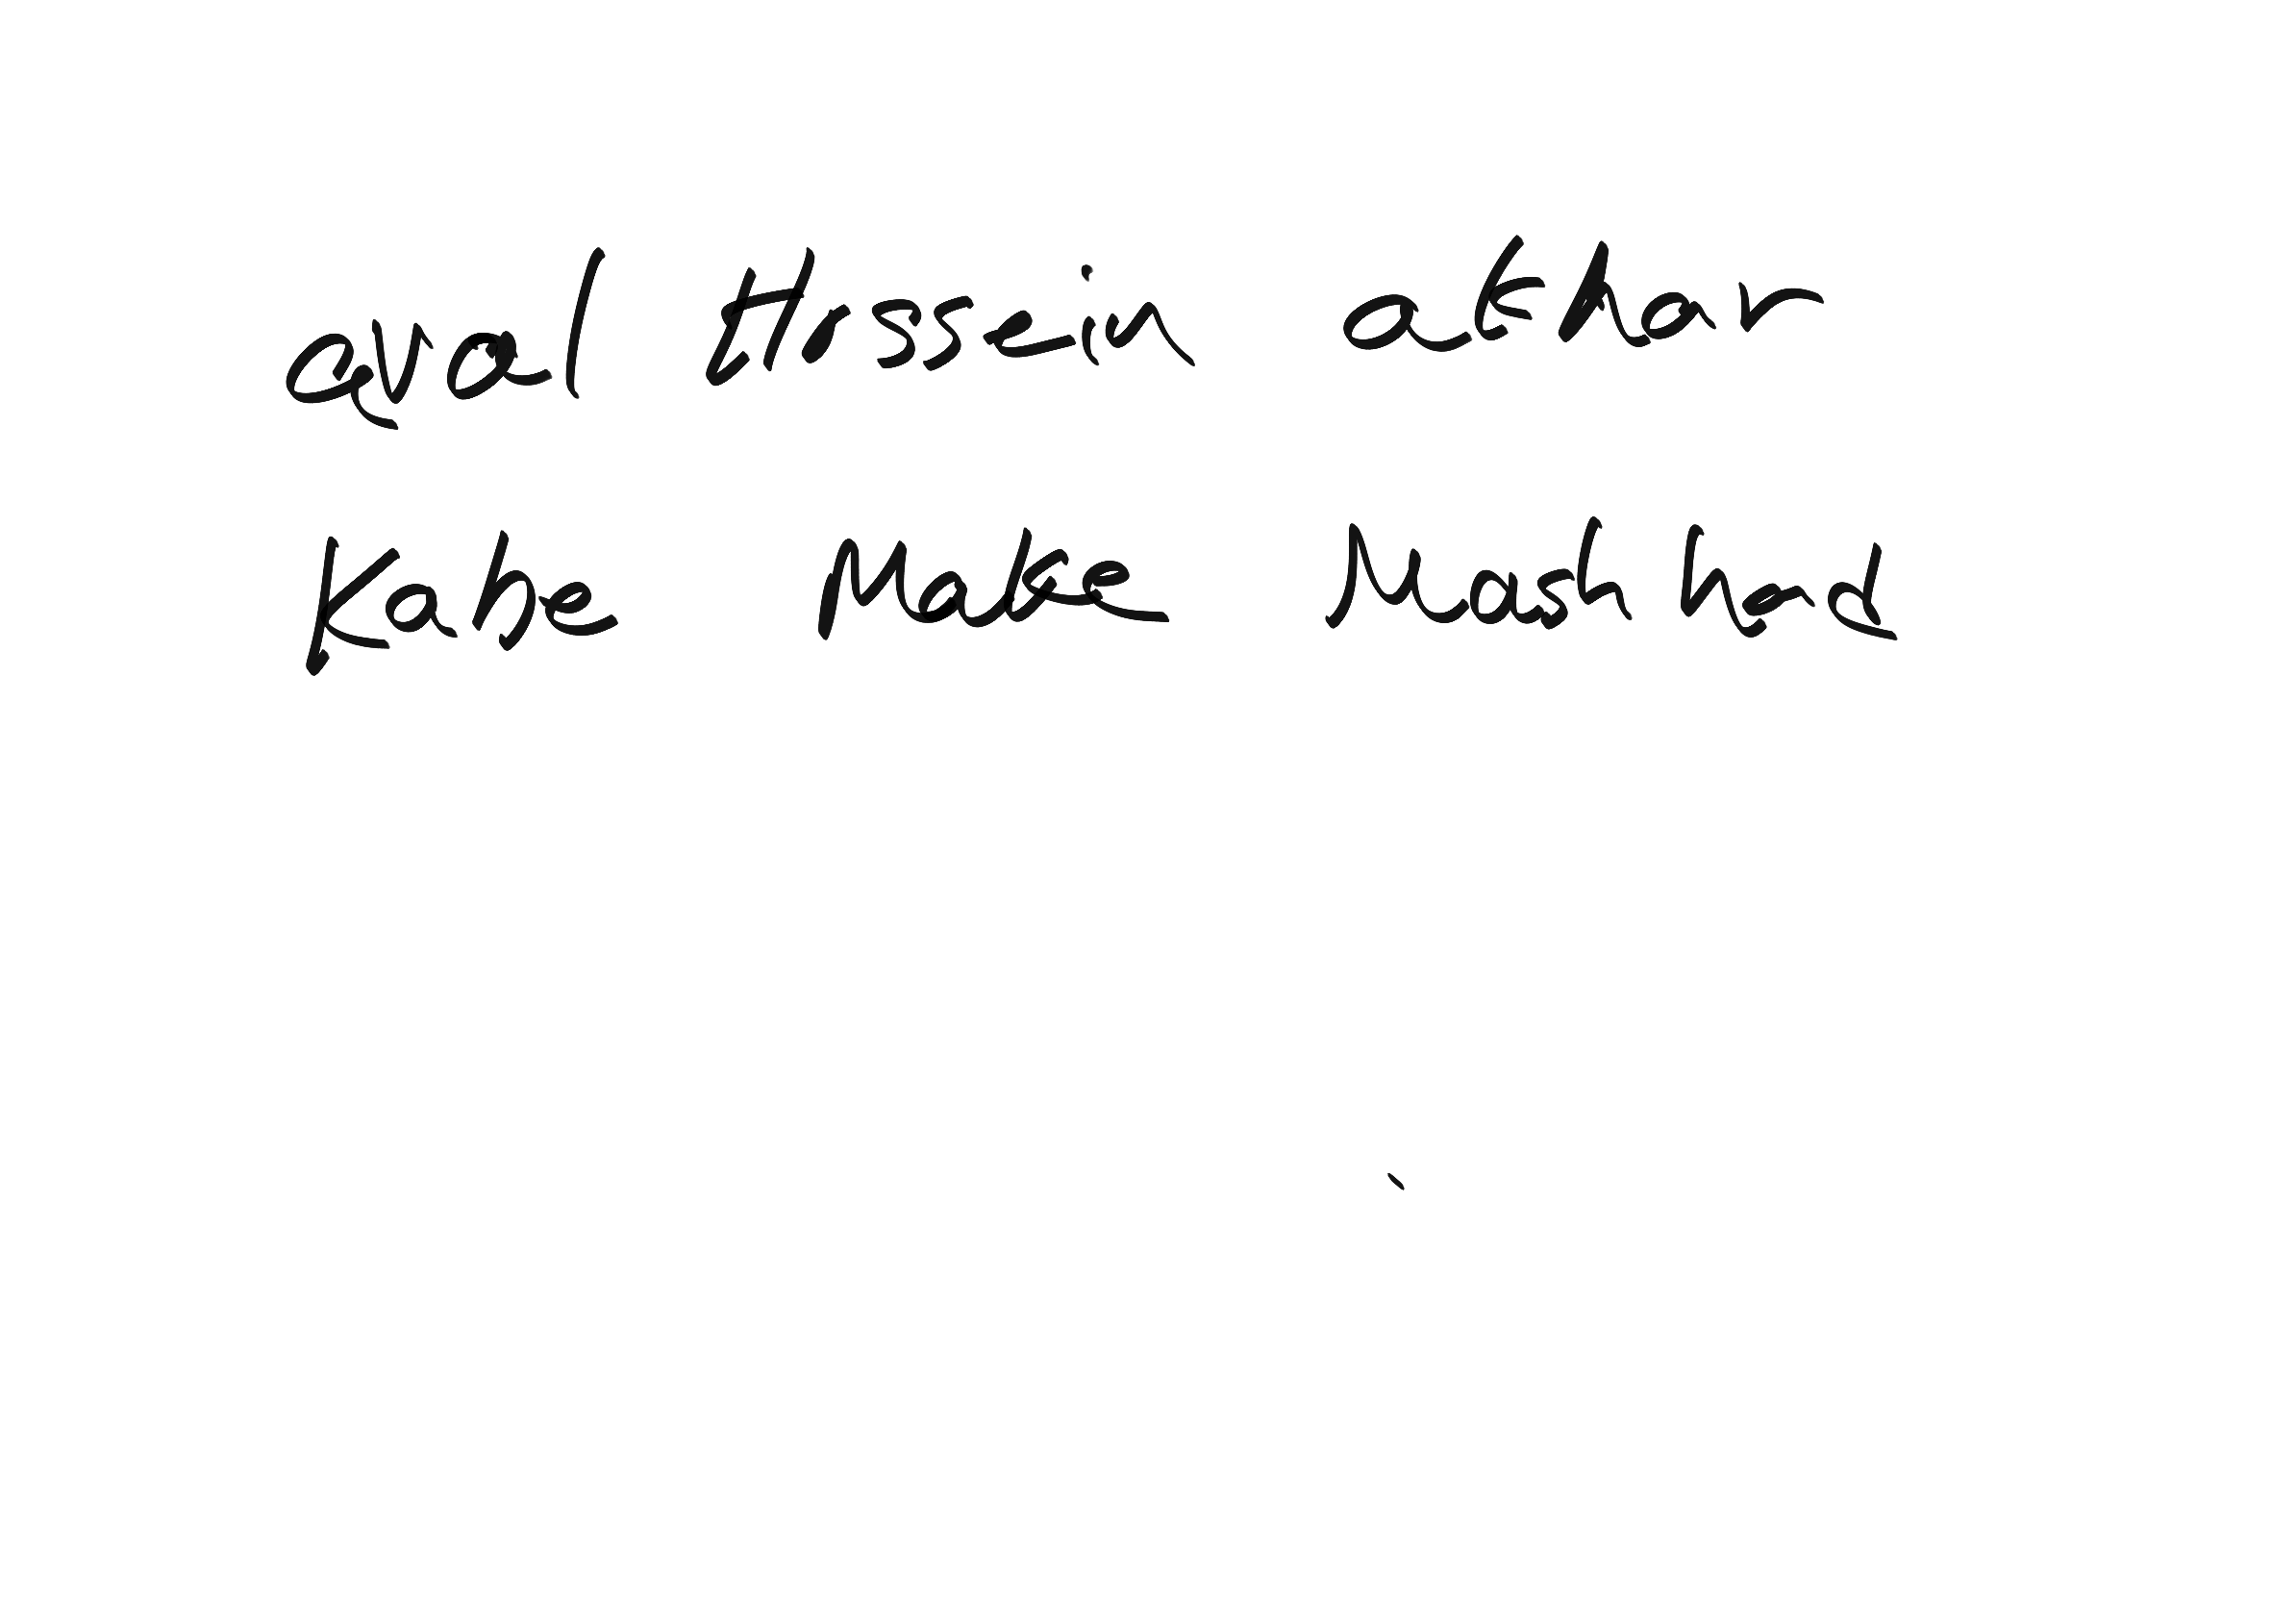 aval Hossein akhar
Kabe Make Mashhad